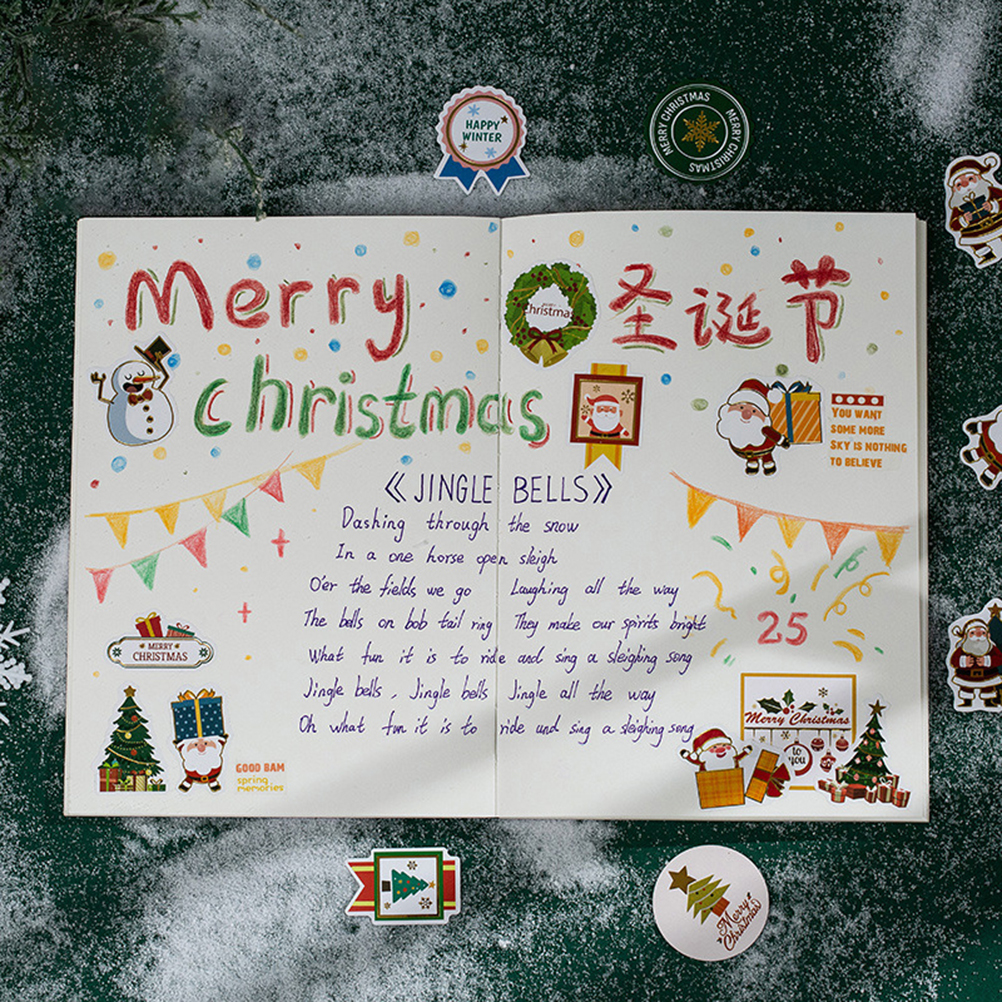 HAPPY
WINTER
MERRY CHRISTMAS MERRY CHRISTMAS
Merry
christmas
Christmas
圣诞节
YOU WANT
SOME MORE
SKY IS NOTHING
TO BELIEVE
《JINGLE BELLS》
Dashing through the snow
In a one horse open sleigh
O'er the fields we go Laughing all the way
The bells on bob tail ring They make our spirits bright
What fun it is to ride and sing a sleighing song
Jingle bells, Jingle bells Jingle all the way
Oh what fun it is to ride and sing a sleighing song
25
MERRY
CHRISTMAS
GOOD BAM
spring
memories
Merry Christmas
to
you
Merry
Christmas